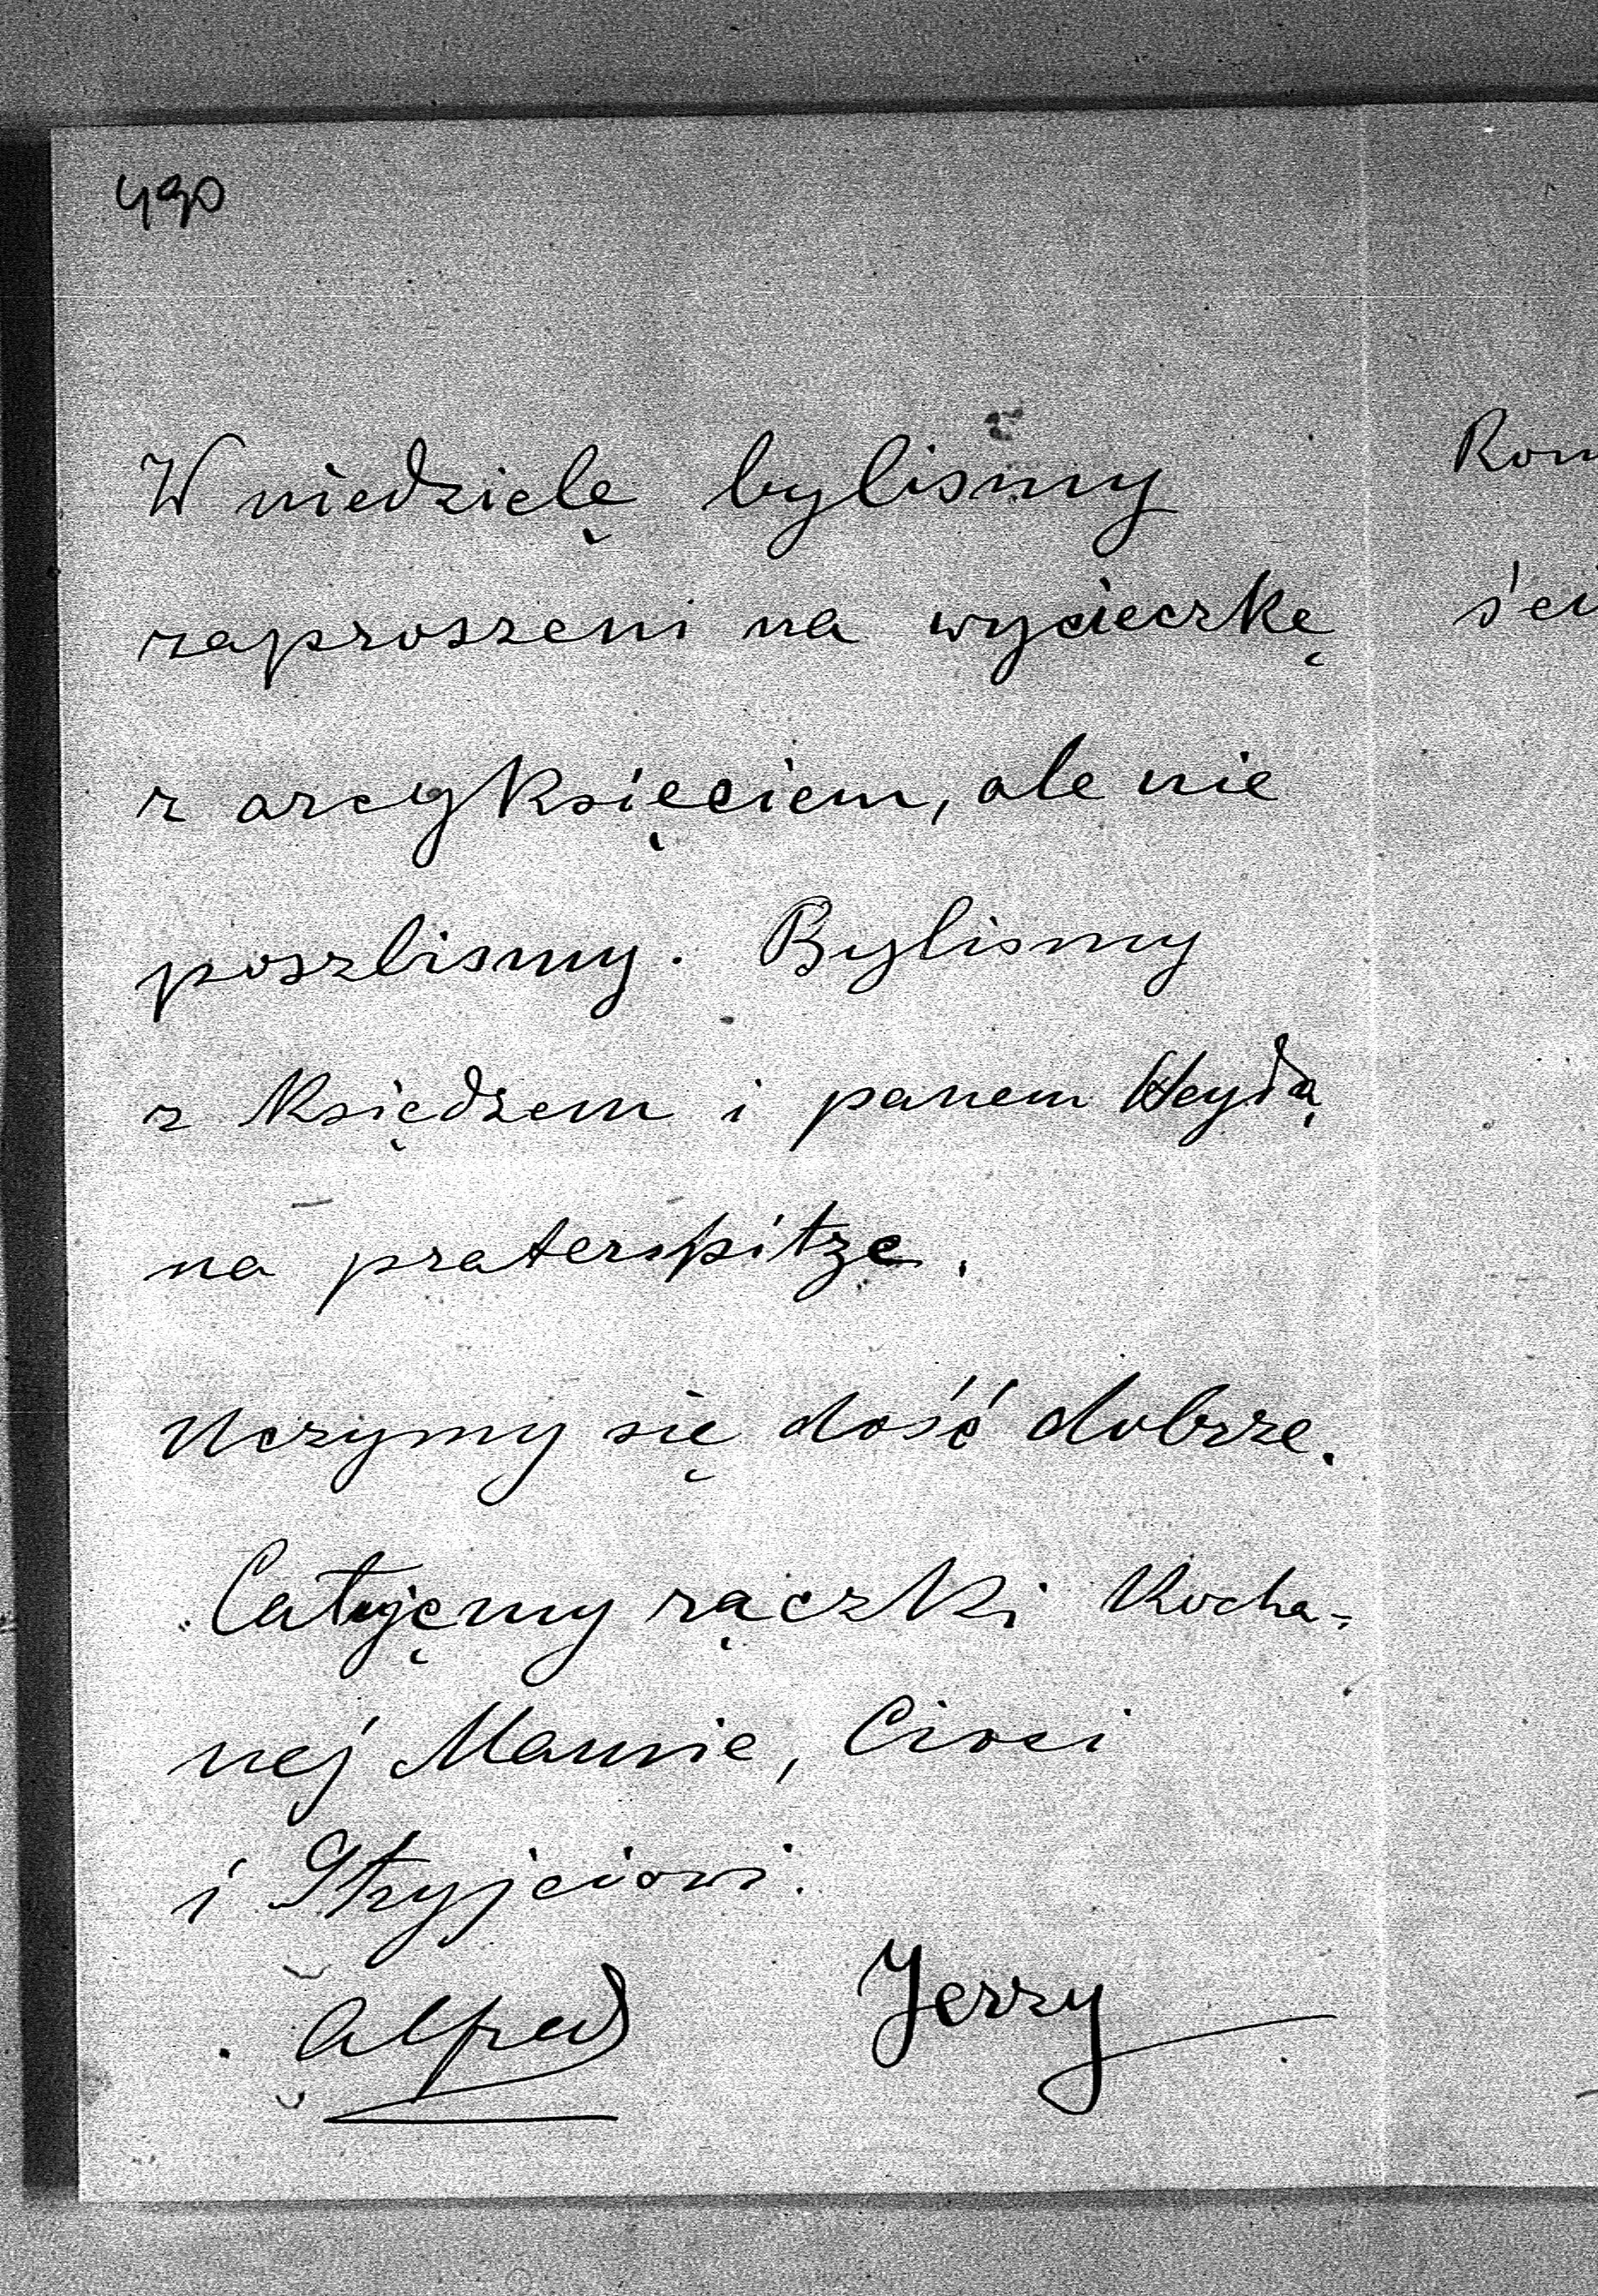 490
W niedzielę bylismy
zaproszeni na wycieczkę
z arcyksięciem, ale nie
poszlismy. Bylismy
z Księdzem i panem Heydą
na praterspitze.
Uczymy się dość dobrze.
Całujęmy rączki Kocha-
nej Mamie, Cioci
i Stryjciowi.
Alfred Jerzy